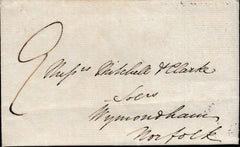 2
Messrs Mitchell & Clarke
Solrs
Wymondham
Norfolk